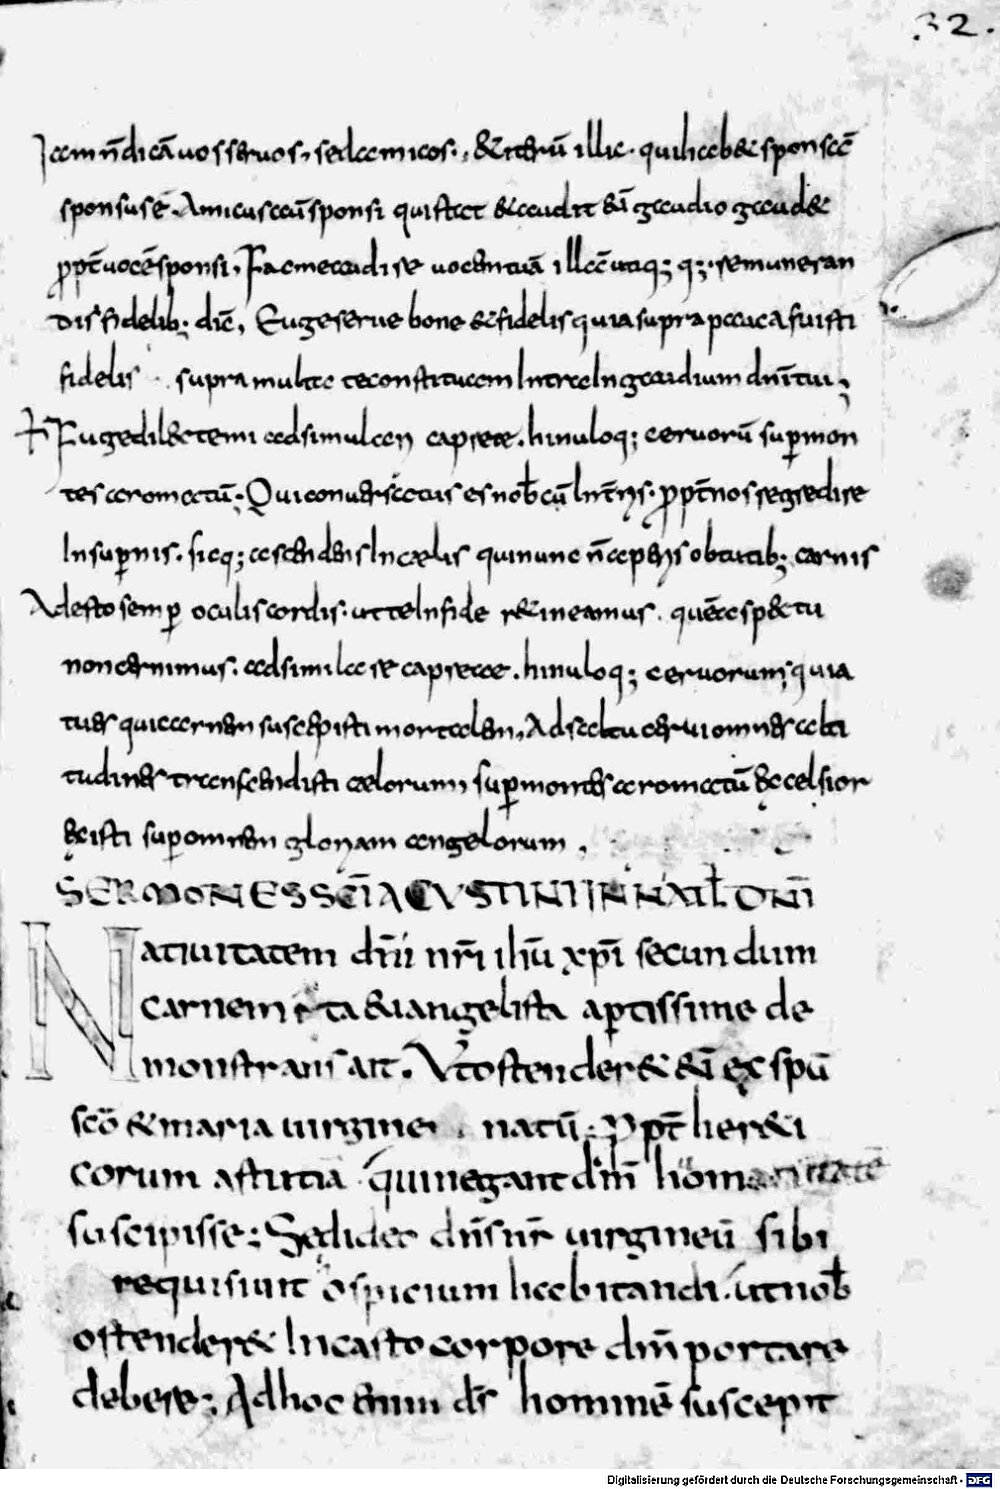 32.
Iam n̄ dicā uos seruos, sed amicos., & iterū illic. qui habet sponsā
sponsus ē. Amicus aūt sponsi qui stat & audit eū gaudio gaudet
ꝓpt̄ uocē sponsi, Fac me audire uocem tuā illā utiq; q;. remuneran
dis fidelib; dic̄, Euge serue bone & fidelis quia supra pauca fuisti
fidelis supra multa te constituam Intra In gaudium dn̄i tui,
Fuge dilecte mi adsimulare capreae. hinuloq; ceruorū sup̱ mon
tes aromatū. Qui conuersatus es nob̄ cū In terris. ꝓpt̄ nos regredire
In sup̱nis. sicq; ascendens In caelis qui nunc n̄ aperis obtutib; carnis
Adesto semp̱ oculis cordis. ut te In fide retineamus. quē aspectu
non cernimus. adsimilare capreae. hinuloq; ceruorum, quia
tuae qui carnem suscepisti mortalem, Ad saltu cerui omnes alti
tudines transcendisti caelorum, sup̱ montes aromatū excelsior
existi sup̱ omnem gloriam angelorum,
SERMONES SC̄I AGUSTINI IN NATL̄ DN̄I
Natiuitatem dn̄i nr̄i ih̄u xp̄i secundum
carnem ita euangelista aptissime de
monstrans ait. Vt ostenderet eū ex spū
scō & maria uirgine natū. Ꝓpt̄ hereti
corum astutiā qui negant dn̄m
suscipisse; Sed ideo dn̄s nr̄ uirgineū sibi
requisiuit ospicium habitandi. ut nob̄
ostenderet In casto corpore dm̄ portare
debere; Ad hoc enim ds̄ hominē suscepit
Digitalisierung gefördert durch die Deutsche Forschungsgemeinschaft - DFG